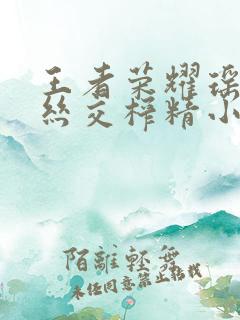 王者荣耀瑶
丝交榨精小
陌離輕舞
未经同意禁止转载